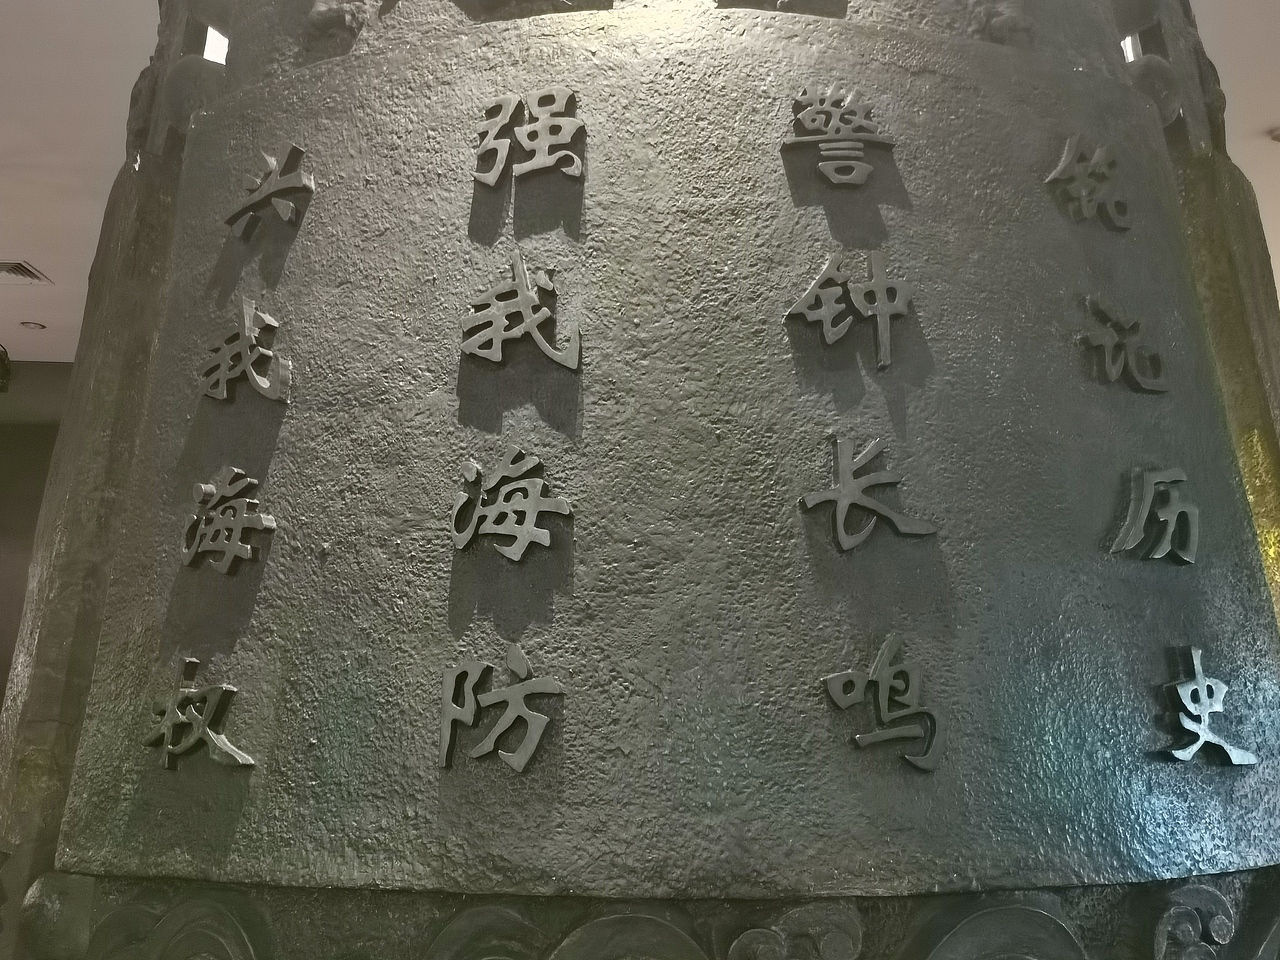 铭记历史
警钟长鸣
强我海防
兴我海权